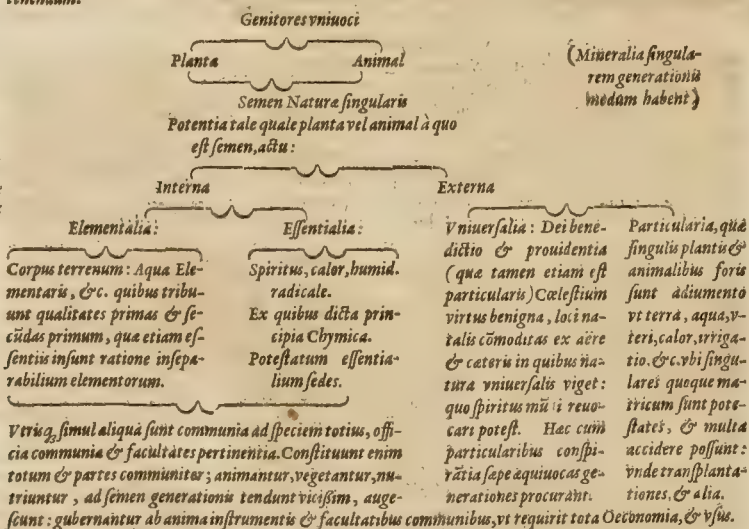 Genitores vniuoci
Planta Animal
(Mineralia singula-
rem generationis
modum habent)
Semen Naturæ singularis
Potentia tale quale planta vel animal à quo
est semen, actu:
Interna Externa
Elementalia: Essentialia:
Corpus terrenum: Aqua Ele-
mentaris, &c. quibus tribu-
unt qualitates primas & se-
cūdas primum, quæ etiam es-
sentiis insunt ratione insepa-
rabilium elementorum.
Spiritus, calor, humid.
radicale.
Ex quibus dicta prin-
cipia Chymica.
Potestatum essentia-
lium sedes.
Vniuersalia: Dei bene-
dictio & prouidentia
(quæ tamen etiam est
particularis) Cælestium
virtus benigna, loci na-
talis cōmoditas ex aëre
& cæteris in quibus na-
tura vniuersalis viget:
quo spiritus mūdi reuo-
cari potest. Hæc cum
particularibus conspi-
rātia sæpe æquiuocas ge-
nerationes procurant.
Particularia, quæ
singulis plantis &
animalibus foris
sunt adiumento
vt terra, aqua, v-
teri, calor, irriga-
tio. &c. vbi singu-
lares quoque ma-
tricum sunt pote-
states, & multa
accidere possunt:
vnde transplanta-
tiones, & alia.
Vtrisq; simul aliqua sunt communia ad speciem totius, offi-
cia communia & facultates pertinentia. Constituunt enim
totum & partes communiter; animantur, vegetantur, nu-
triuntur, ad semen generationis tendunt vicissim, auge-
scunt: gubernantur ab anima instrumentis & facultatibus communibus, vt requirit tota Oeconomia, & vsus.